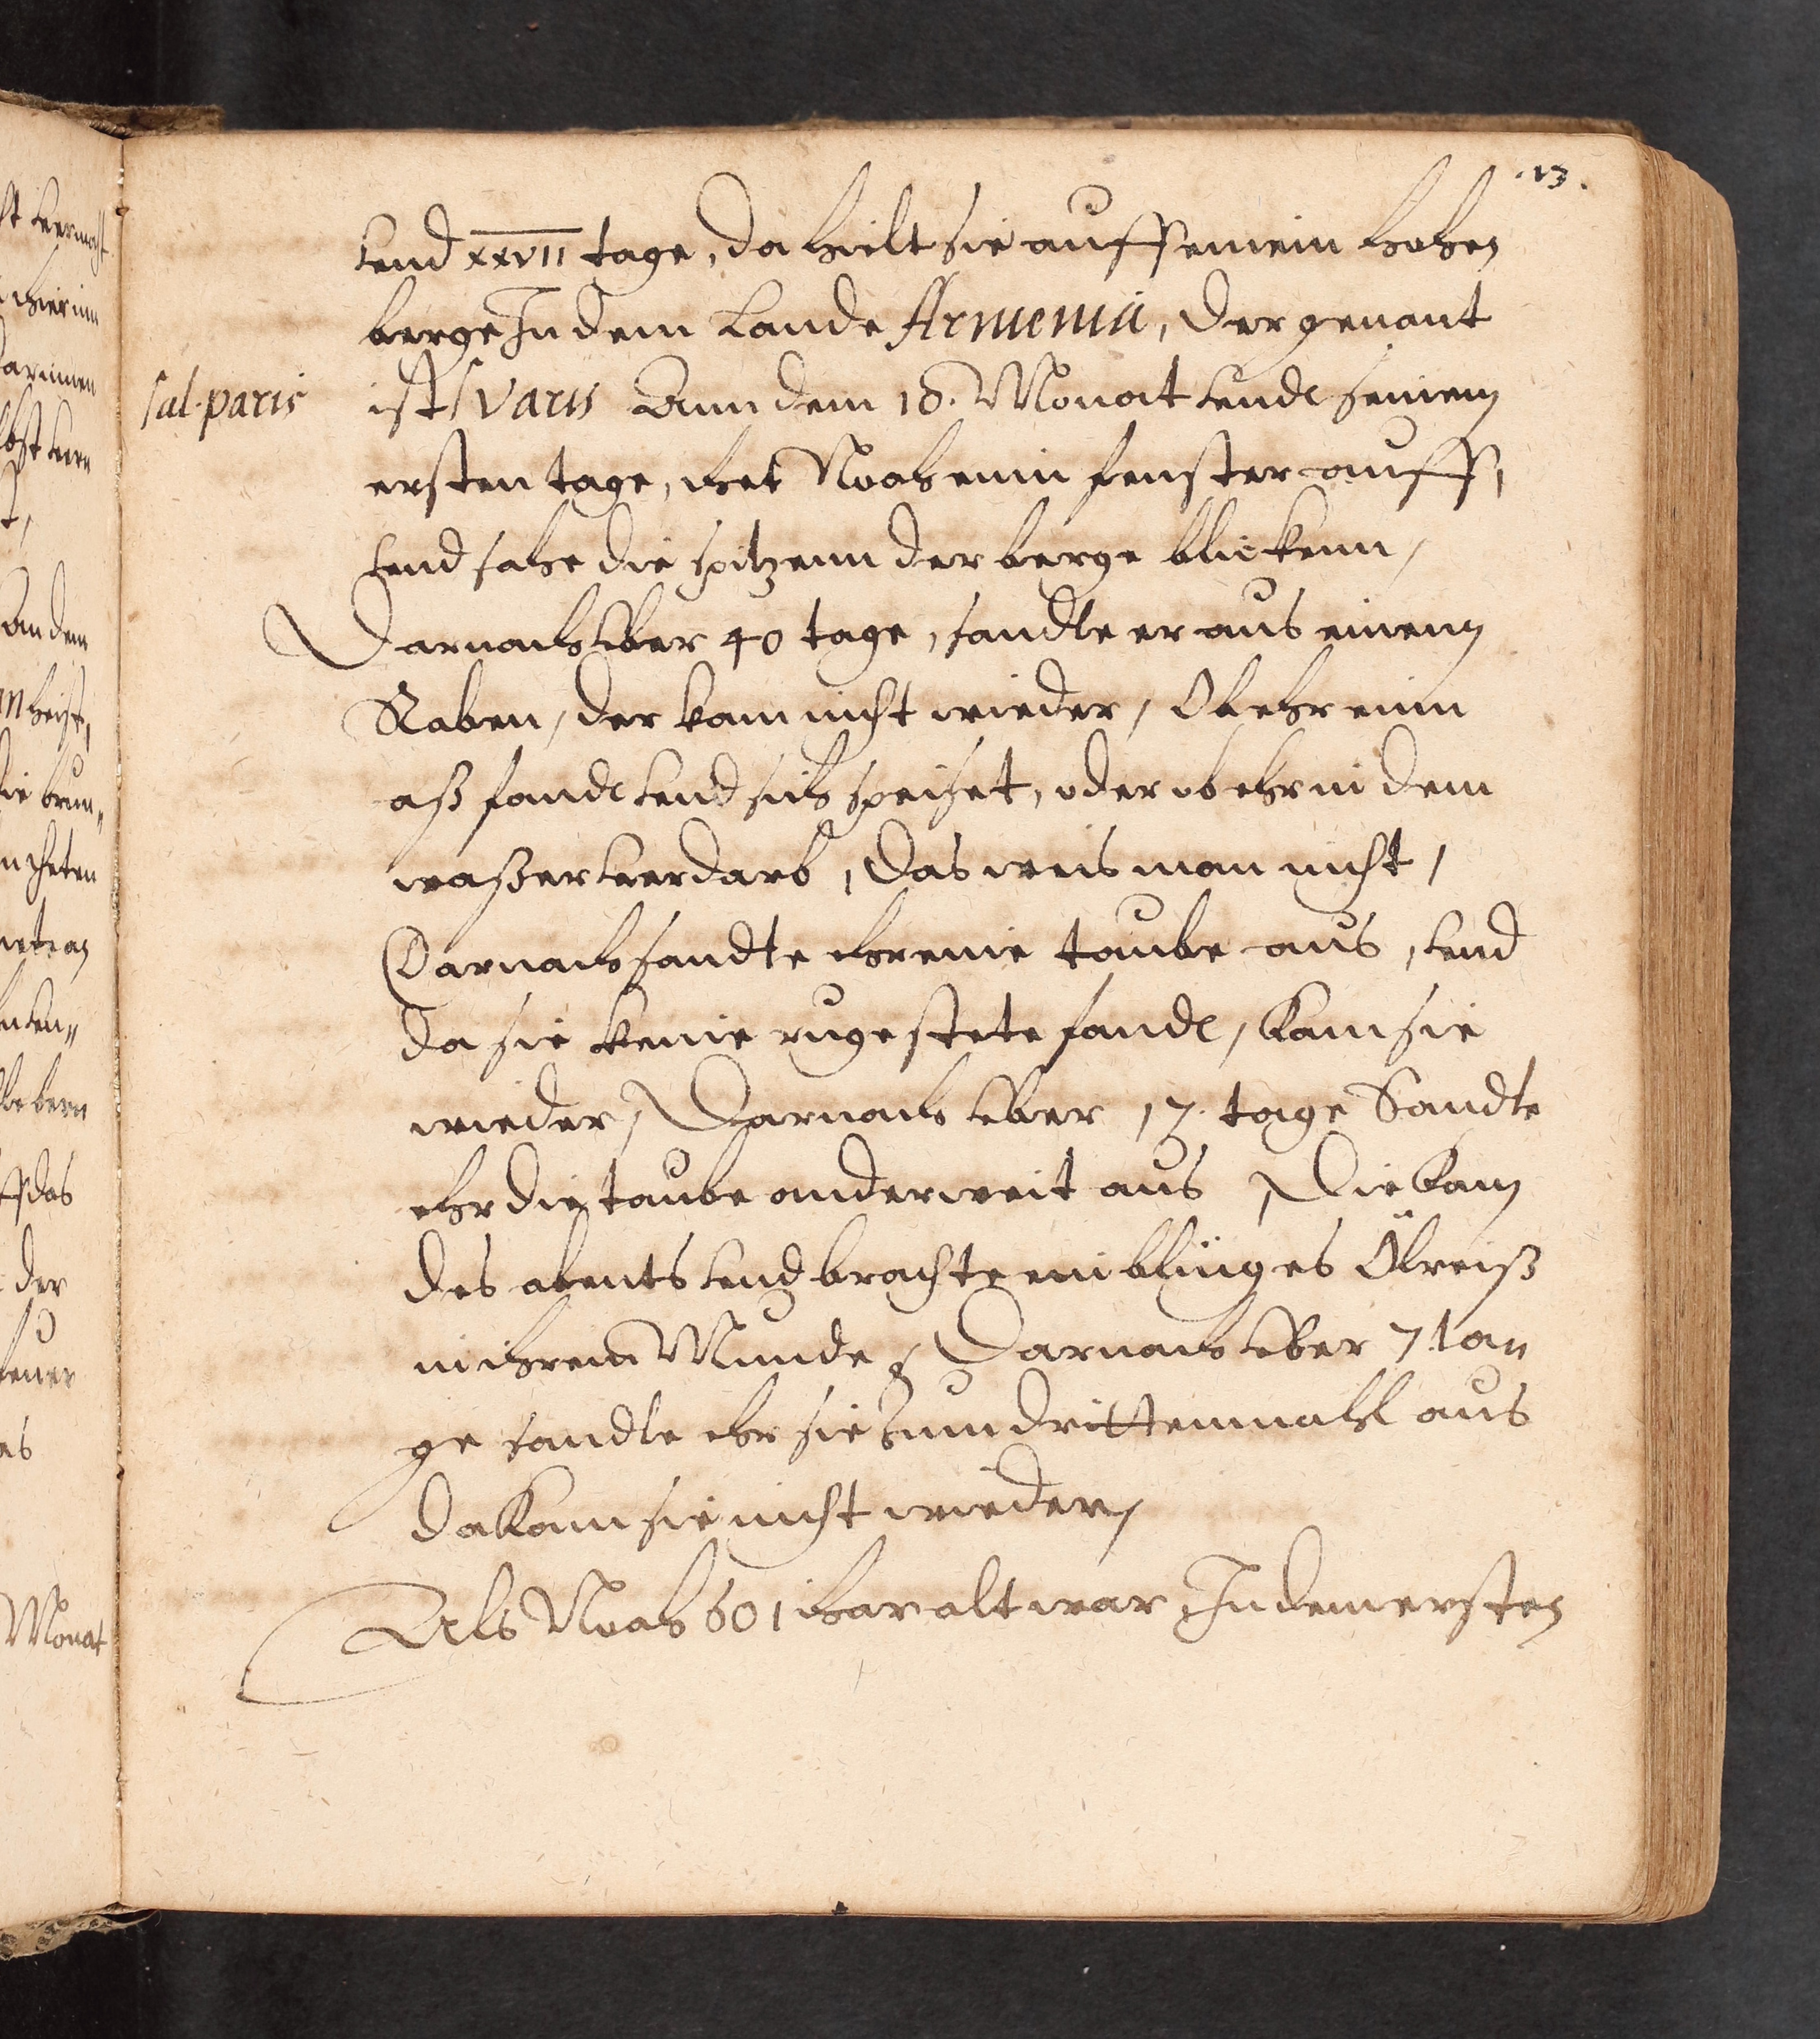 .13.
vnd xxvii tage, da hielt sie auff einem hohen
berge In dem Lande Armenia, der genant
sal. paris
ist varis Ann dem 10. Monat vnde seinem
ersten tage, thet Noah einn fenster auff,
vnd sahe die spitzenn der berge blickenn /
Darnach vber 40 tage, sandte er aus einenn
Raben, der kam nicht wieder, Ob ehr einn
aß fandt vnd sich speiset, oder ob ehr in dem
waßer verdarb, das weis man nicht,
Darnach sandte ehr eine taube aus, vnd
da sie keine ruge stete fandt, kam sie
wieder, Darnach vber 17. tage Sandte
ehr die taube anderweit aus, Die kam
des abents vnd brachte ein blüiges Ölreiß
in ihrem Munde, Darnach vber 7 ta„
ge sandte ehr sie zum drittenmahl aus
da kam sie nicht wieder,
Als Noah 601 ihar alt war, In dem ersten